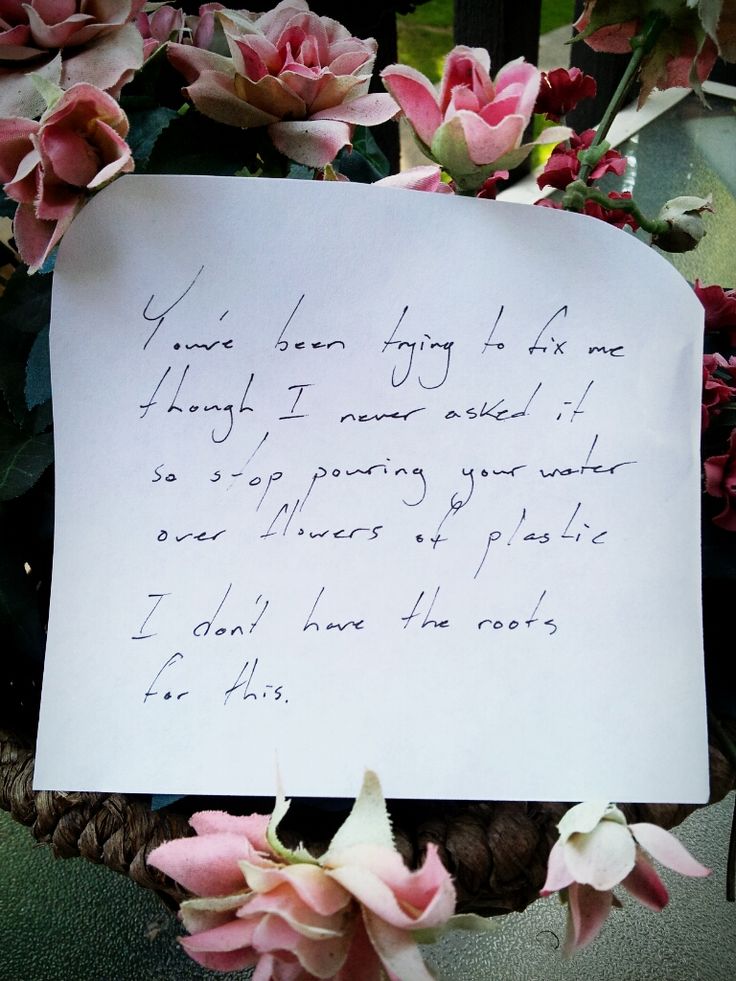 You've been trying to fix me
though I never asked it
so stop pouring your water
over flowers of plastic
I don't have the roots
for this.